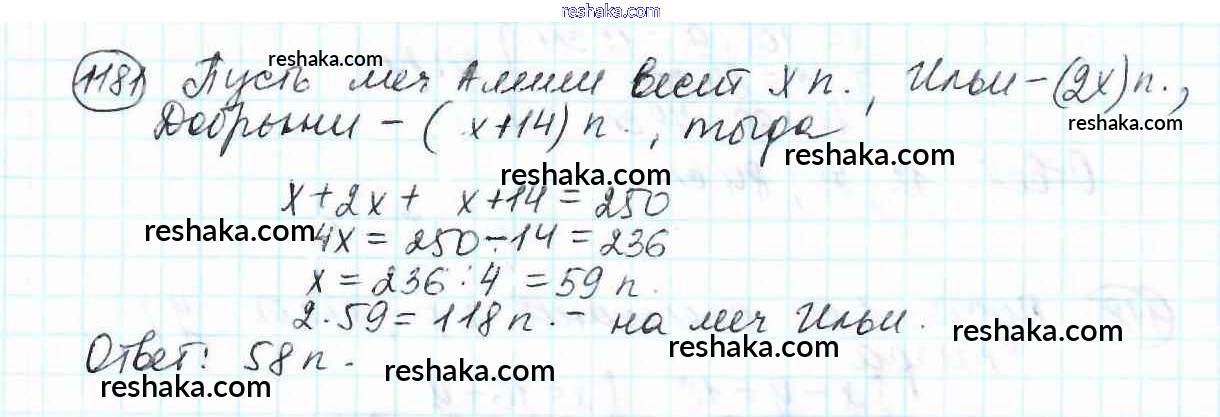 reshaka.com
1181 Пусть меч Алеши весит x п., Ильи - (2x) п.,
reshaka.com
reshaka.com
Добрыни - (x+14) п., тогда
reshaka.com
reshaka.com
x + 2x + x+14 = 250
reshaka.com
reshaka.com
4x = 250 - 14 = 236
x = 236 : 4 = 59 п.
reshaka.com
2·59 = 118 п. - на меч Ильи.
reshaka.com
reshaka.com
Ответ: 58 п.
reshaka.com
reshaka.com